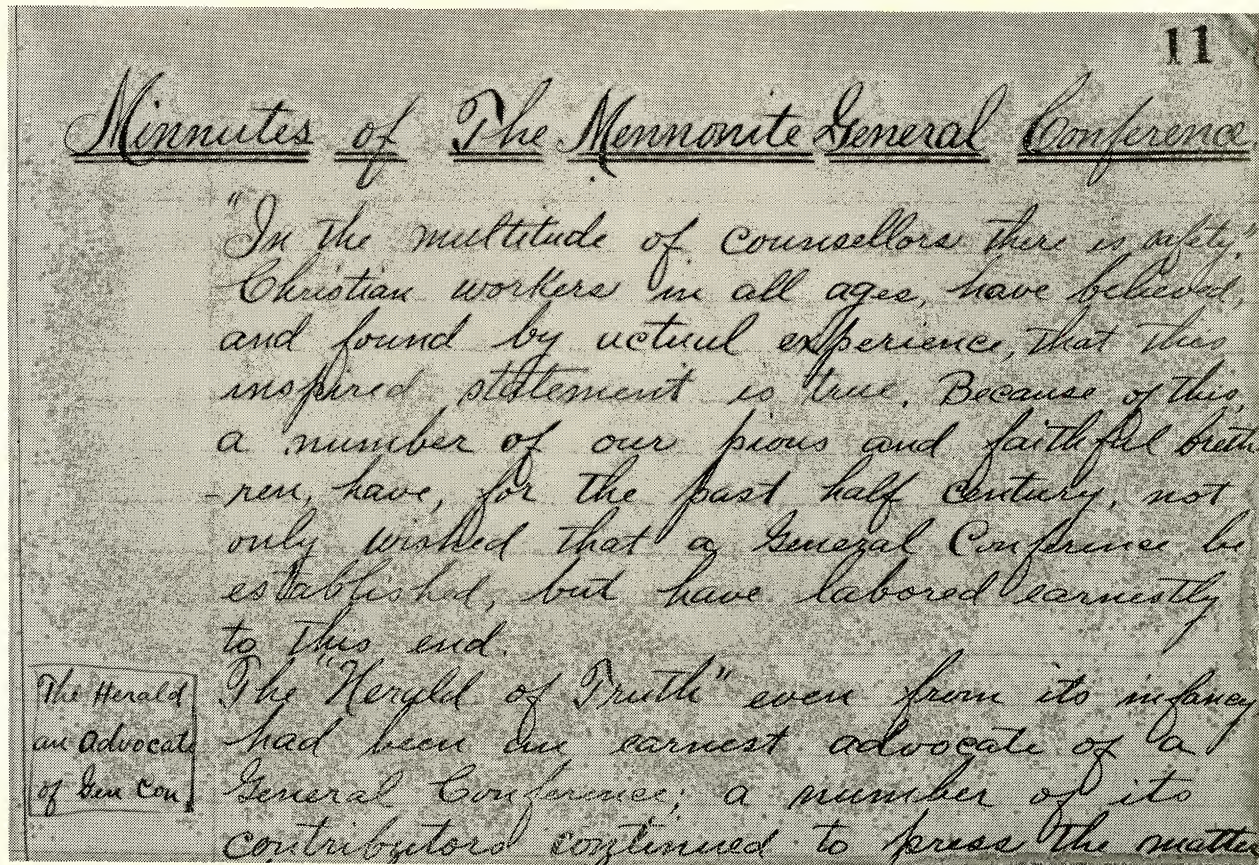 11
Minnutes of The Mennonite General Conference
"In the multitude of counsellors there is safety."
Christian workers in all ages, have believed,
and found by actual experience, that this
inspired statement is true. Because of this,
a number of our pious and faithful breth
-ren, have, for the past half century, not
only wished that a General Conference be
established, but have labored earnestly
to this end.
The "Herald of Truth" even from its infancy
had been an earnest advocate of a
General Conference; a number of its
contributors continued to press the matte
The Herald
an Advocate
of Gen Con